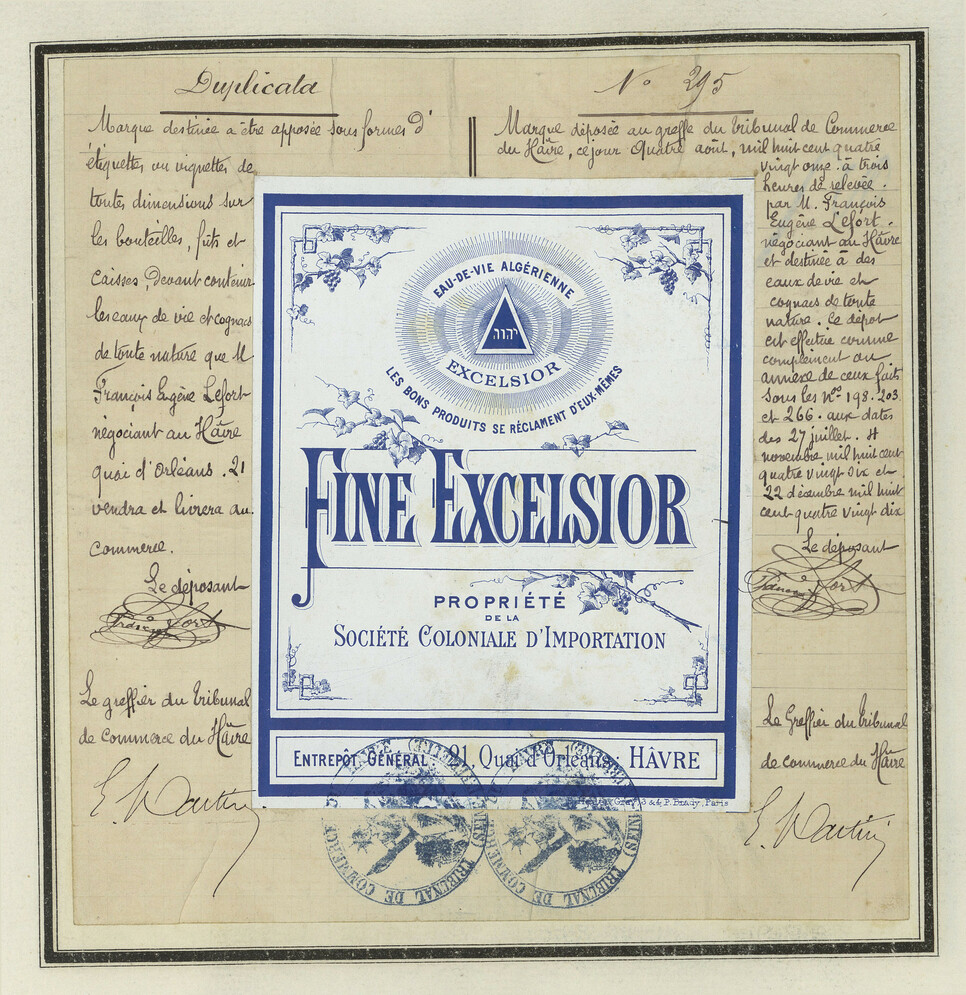 Duplicata
Marque destinée à être apposée sous formes d'
étiquettes ou vignettes de
toutes dimensions sur
les bouteilles, fûts et
caisses, devant contenir
les eaux de vie et cognacs
de toute nature que M
François Eugène Lefort
négociant au Hâvre
quai d'Orléans. 21
vendra et livrera au
commerce.
Le déposant
Le greffier du Tribunal
de commerce du Hâvre
E. Martin
No 295
Marque déposée au greffe du Tribunal de Commerce
du Hâvre, ce jour Quatre août, mil huit cent quatre
vingt onze. à trois
heures de relevée.
par M. François
Eugène Lefort.
négociant au Hâvre
et destinée à des
eaux de vie et
cognacs de toute
nature. Ce dépôt
est effectué comme
complément ou
annexe de ceux faits
sous les Nos 198. 203
et 266. aux dates
des 27 juillet. 4
novembre mil huit cent
quatre vingt six et
22 décembre mil huit
cent quatre vingt dix
Le déposant
Le Greffier du Tribunal
de commerce du Hâvre
E. Martin
EAU-DE-VIE ALGÉRIENNE
יהוה
EXCELSIOR
LES BONS PRODUITS SE RÉCLAMENT D'EUX-MÊMES
FINE EXCELSIOR
PROPRIÉTÉ
DE LA
SOCIÉTÉ COLONIALE D'IMPORTATION
ENTREPÔT GÉNÉRAL: 21, Quai d'Orléans: HÂVRE
Paris
TRIBUNAL DE COMMERCE
TRIBUNAL DE COMMERCE